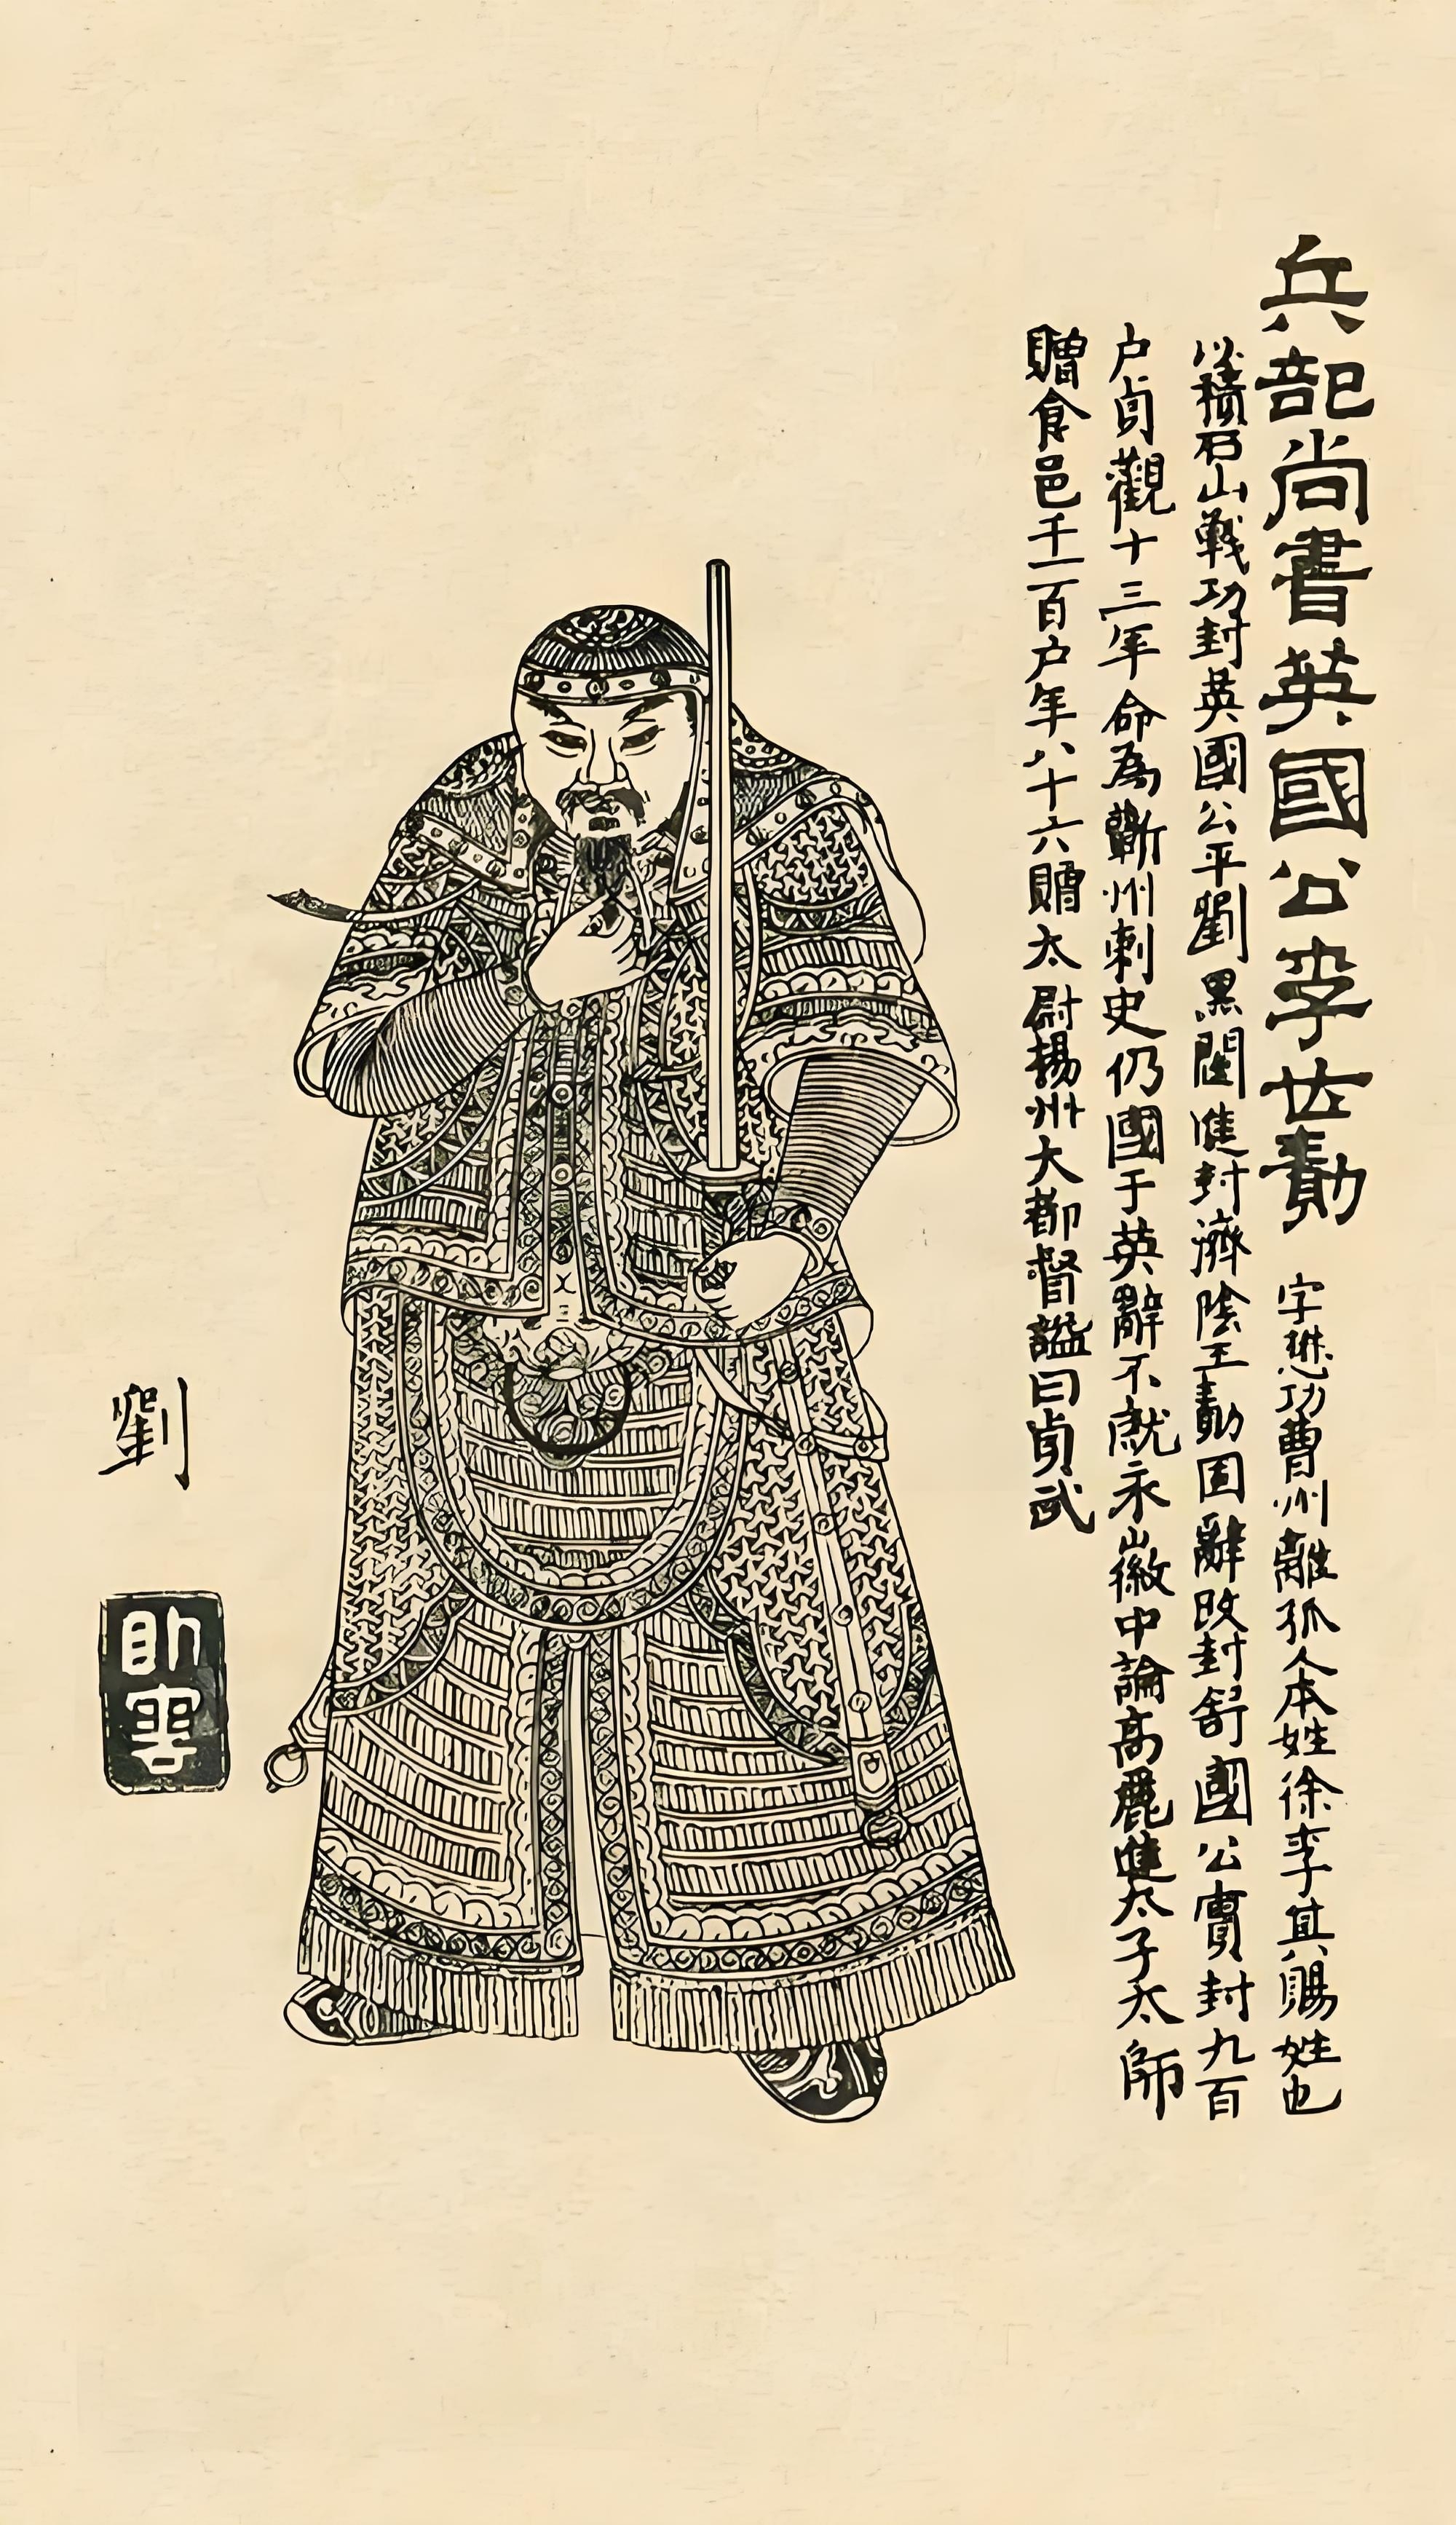 兵部尚書英國公李世勣 字懋功曹州離狐人本姓徐李其賜姓也
以積石山戰功封英國公平劉黑闥進封濟陰王勣固辭改封舒國公實封九百
户貞觀十三年命為蘄州刺史仍國于英辭不就永徽中論高麗進太子太師
贈食邑千一百户年八十六贈太尉揚州大都督諡曰貞武
劉